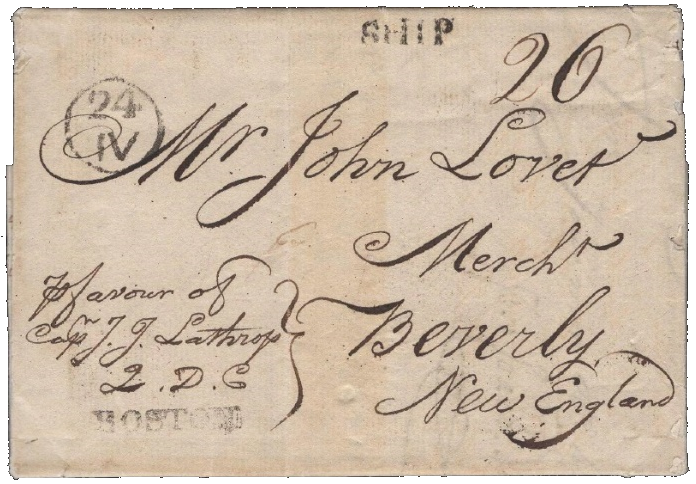 SHIP
26
24
IV
Mr John Lovet
Mercht
Beverly
New England
pfavour of
Capn J. J. Lathrop
2. D. C
BOSTON